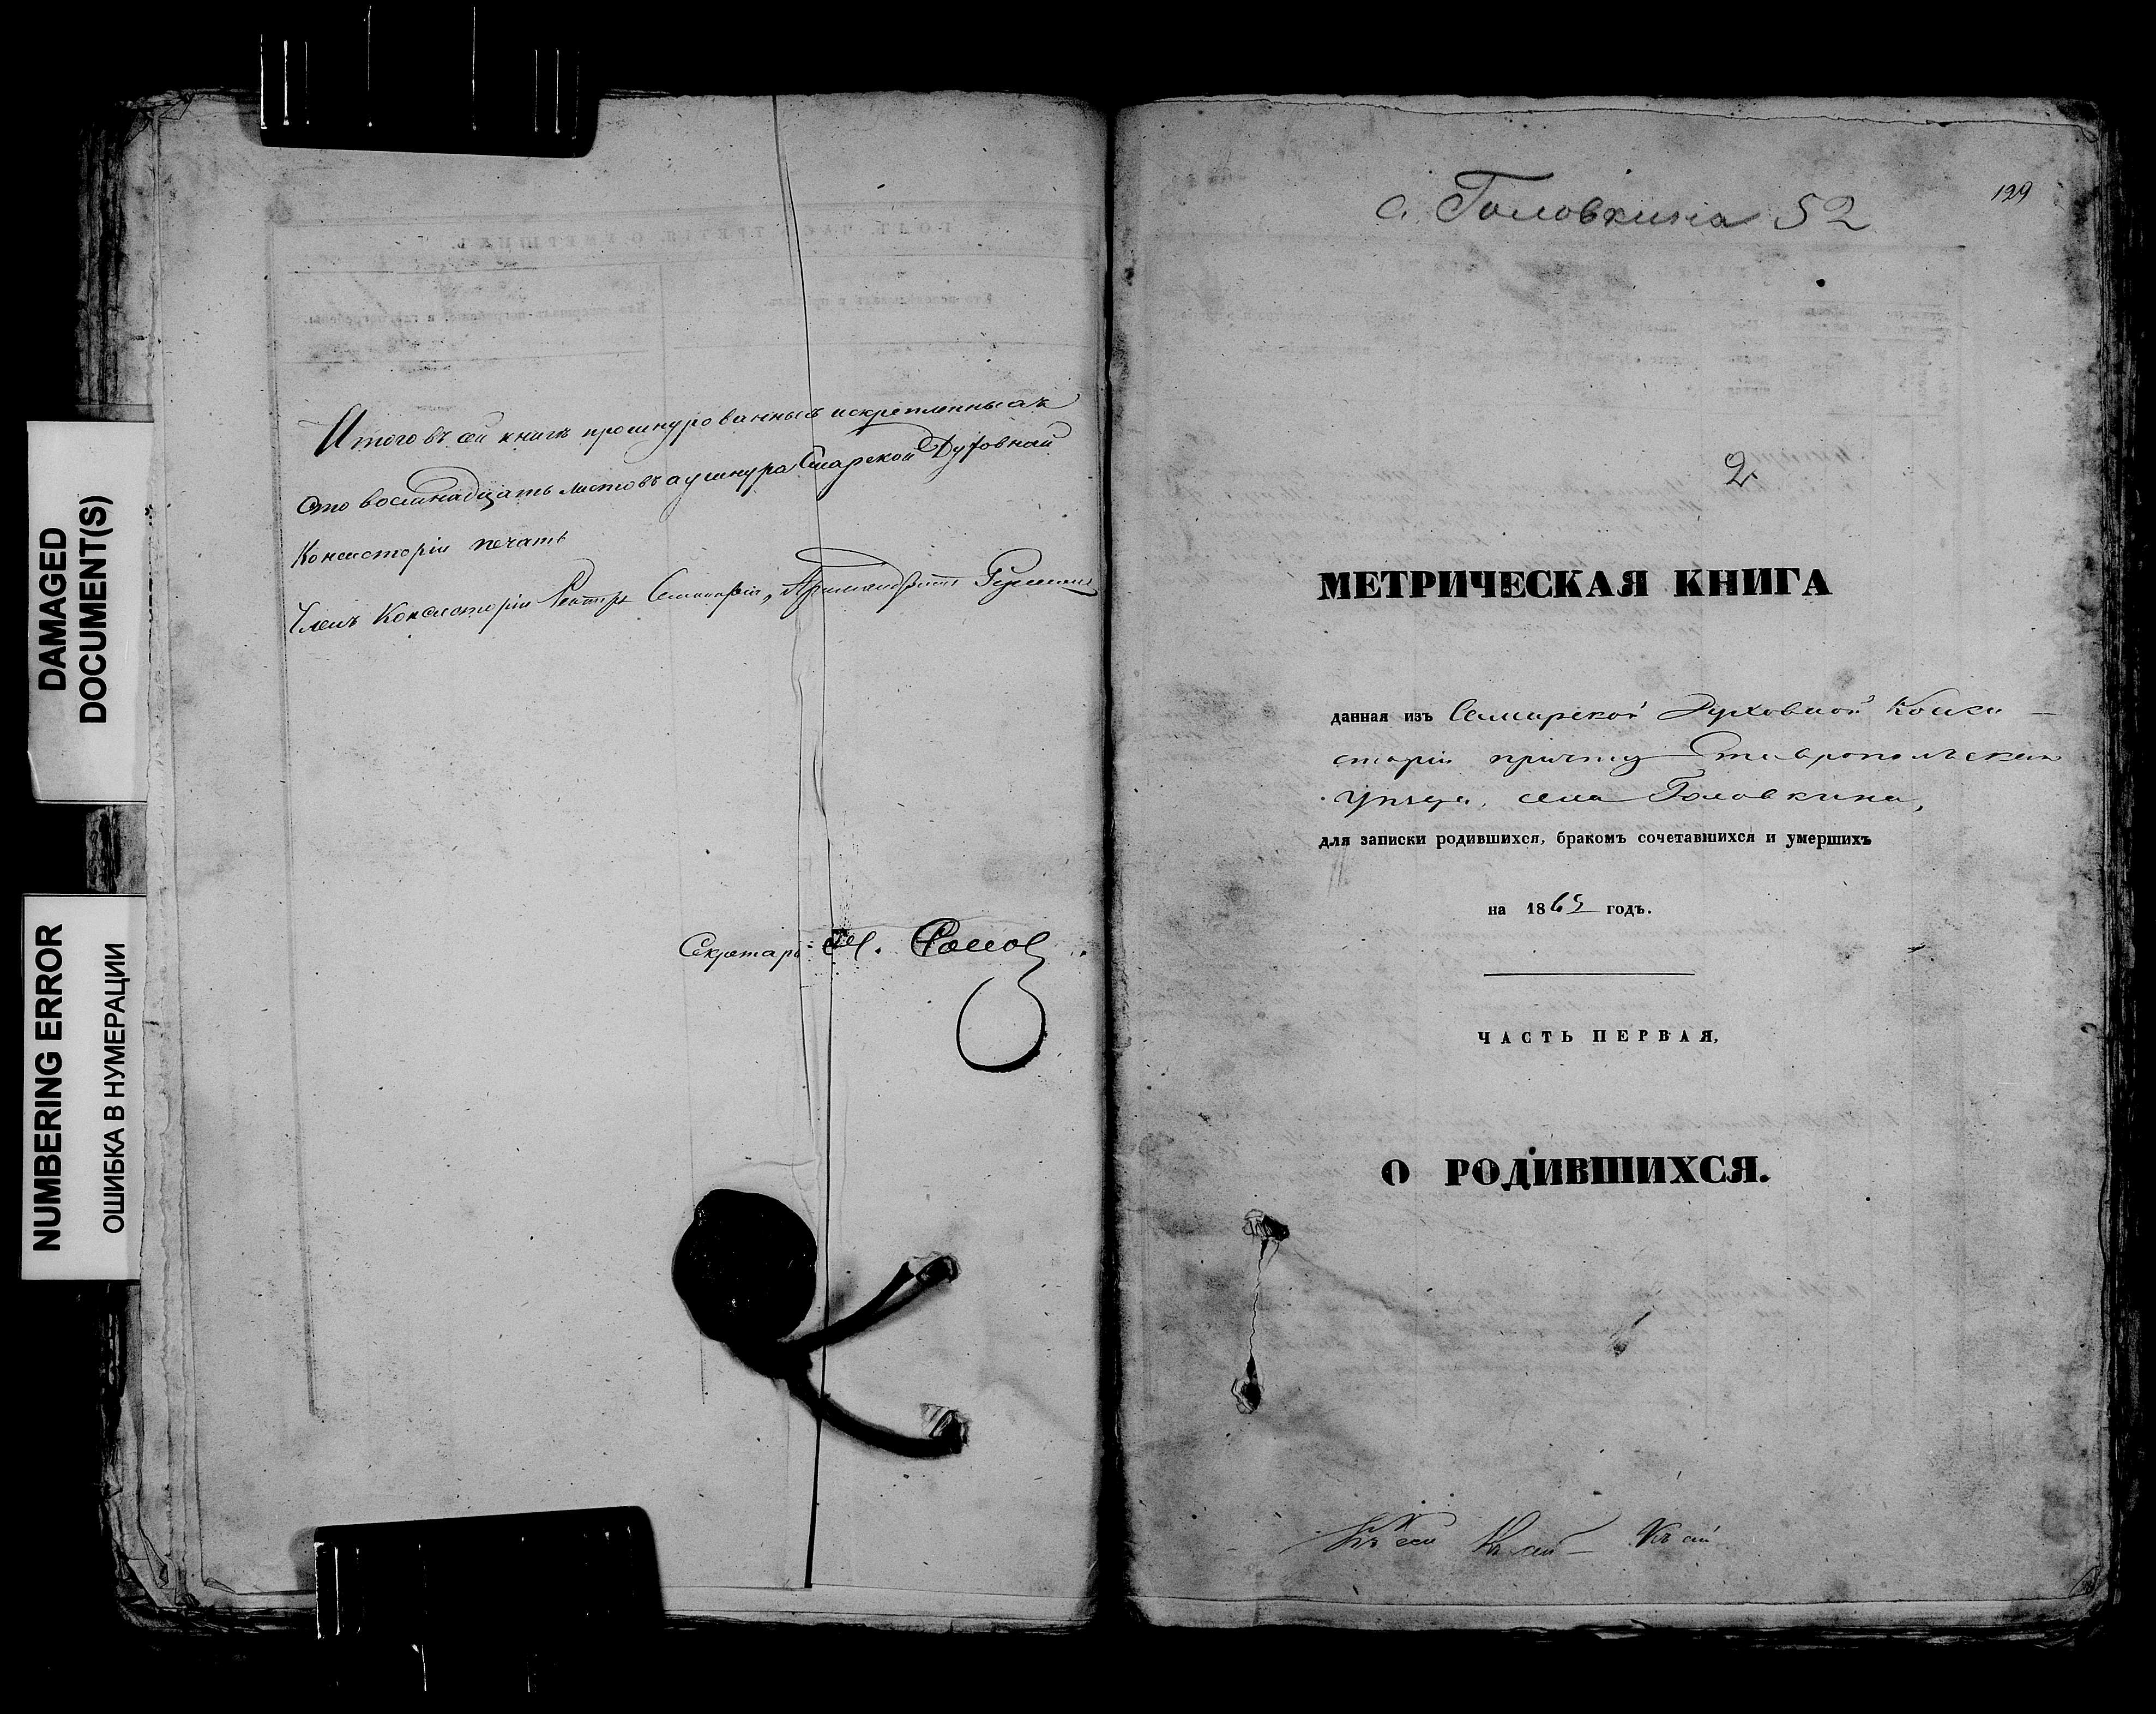 DAMAGED
DOCUMENT(S)
NUMBERING ERROR
ОШИБКА В НУМЕРАЦИИ
Итого въ сей книгѣ прошнурованныхъ и скрепленныхъ
сто восемнадцать листовъ а у шнура Самарской Духовной
Консисторіи печать
Членъ Консисторіи Ректоръ Семинаріи, Архимандритъ
Секретарь
с. Головкина 52
129
2
МЕТРИЧЕСКАЯ КНИГА
данная изъ Самарской Духовной Конси-
сторіи причту Ставропольскаго
уѣзда, села Головкина,
для записки родившихся, бракомъ сочетавшихся и умершихъ
на 1865 годъ.
ЧАСТЬ ПЕРВАЯ,
О РОДИВШИХСЯ.